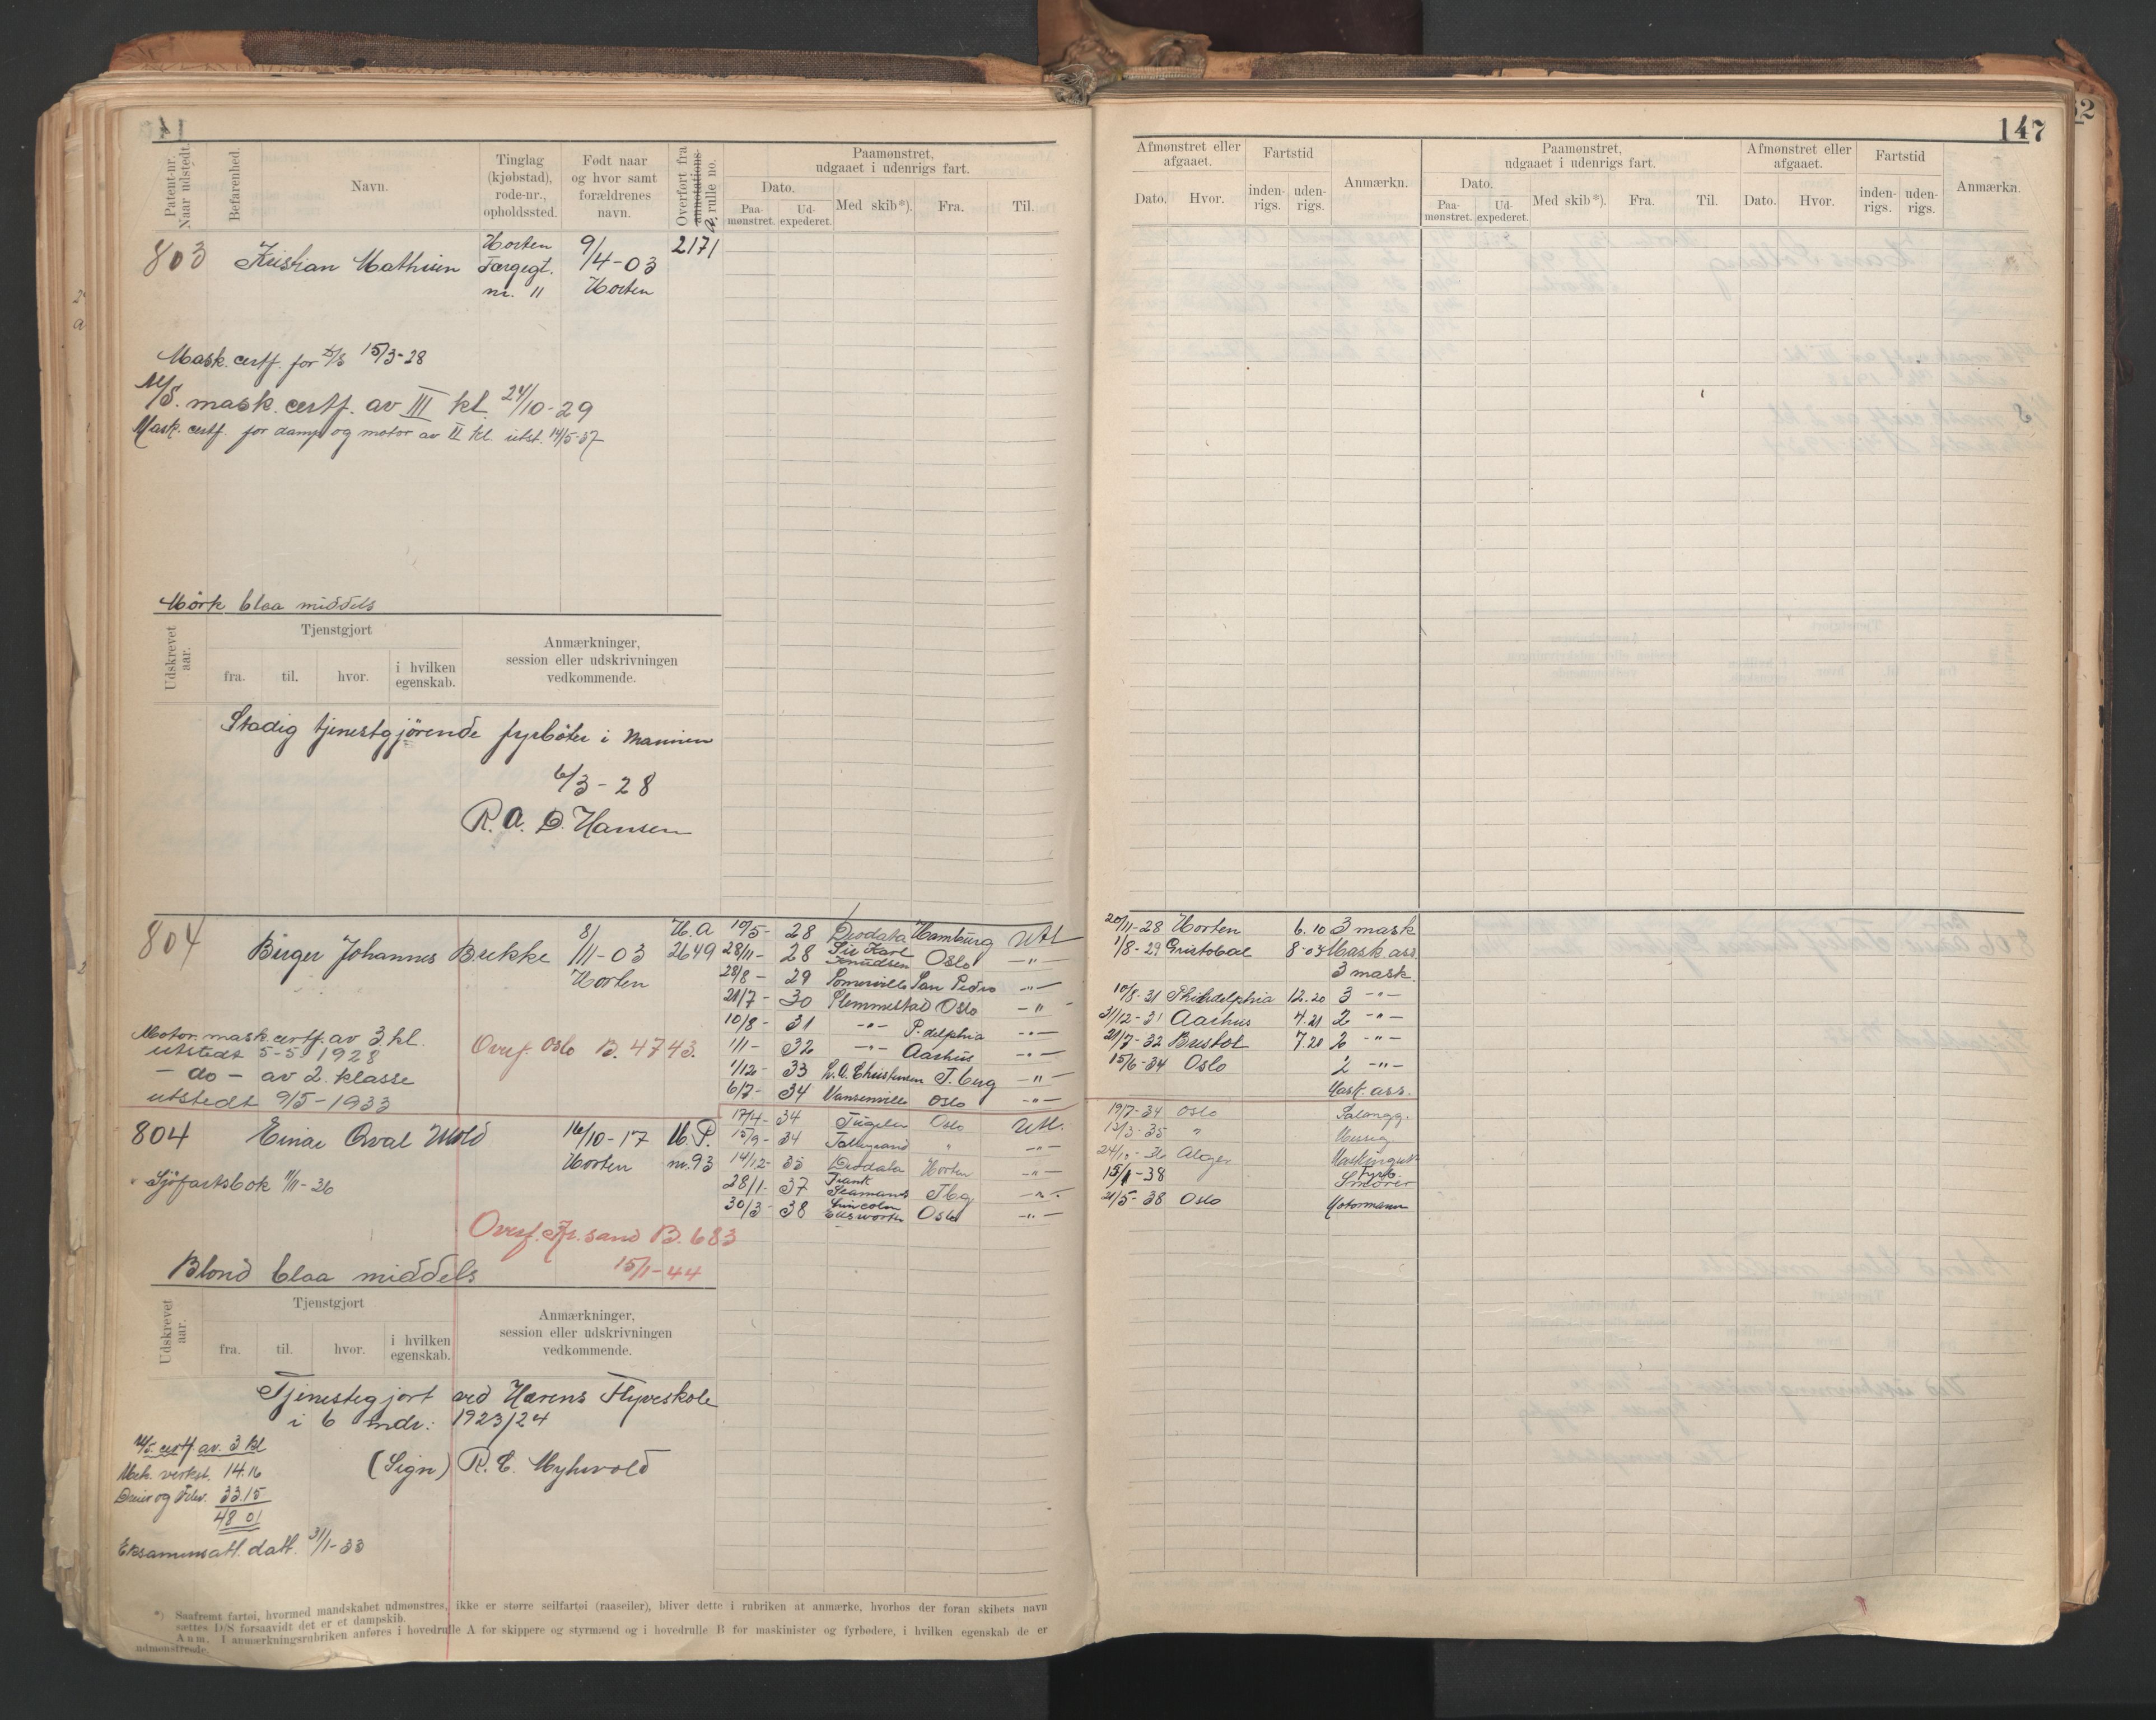 147
Patent-nr. Naar udstedt.
Befarenhed.
Navn.
Tinglag (kjøbstad), rode-nr., opholdssted.
Født naar og hvor samt forældrenes navn.
Overført fra annotations- rulle no.
Paamønstret, udgaaet i udenrigs fart.
Dato.
Paa-mønstret.
Ud-expederet.
Med skib*).
Fra.
Til.
Afmønstret eller afgaaet.
Dato.
Hvor.
Fartstid
inden-rigs.
uden-rigs.
Anmærkn.
Paamønstret, udgaaet i udenrigs fart.
Dato.
Paa-mønstret.
Ud-expederet.
Med skib*).
Fra.
Til.
Afmønstret eller afgaaet.
Dato.
Hvor.
Fartstid
inden-rigs.
uden-rigs.
Anmærkn.
803 Kristian Mathisen Horten 9/4-03 2171
Færgegt. nr. 11 Horten
Mask. certf. for D/S 15/3-28
M/S. mask. certf. av III kl. 24/10-29
Mask. certf. for damp og motor av II kl. utst. 14/5-37
Mörk blaa middels
Udskrevet aar.
Tjenstgjort
fra.
til.
hvor.
i hvilken egenskab.
Anmærkninger, session eller udskrivningen vedkommende.
Stadig tjenestgjørende fyrbøter i Marinen
6/3-28
R. A. D. Hansen
804 Birger Johannes Brekke 8/11-03 Horten H.A 2649
19/5- 28 Deodata Hamburg Utl 20/11-28 Horten 6.10 3 mask
28/11- 28 Sir Karl Knudsen Oslo -"- 1/8-29 Cristobal 8-03 Mask ass.
28/8- 29 Somerville San Pedro -"- 3 mask.
21/7- 30 Slemmestad Oslo -"- 10/8-31 Philadelphia 12.20 3 -"-
10/8- 31 -"- P.delphia -"- 31/12-31 Aarhus 4.21 2 -"-
1/1- 32 -"- Aarhus -"- 21/7-32 Bristol 7.20 2 -"-
1/12- 33 L.A. Christensen T.berg -"- 15/6-34 Oslo 2 -"-
6/7- 34 Vansenville Oslo -"- Mask. ass.
Motor. mask. certf. av 3 kl.
utstedt 5-5 1928
- do - av 2. klasse
utstedt 9/5-1933
Overf. Oslo B. 4743.
804 Einar Orval Wold 16/10-17 Horten H.P. nr. 93
17/4- 34 Tugela Oslo Utl. 19/7-34 Oslo Salongg.
15/9- 34 Oslo " -"- 13/3-35 " Messg.
14/12- 35 Deodata Horten -"- 24/10-36 Alger Maskingutt
28/1- 37 Frank Seamans Tbg -"- 15/1-38 Fyrb. Smører
30/3- 38 Lincoln Ellsworth Oslo -"- 21/5-38 Oslo Motormann
Sjöfartsbok 11/11-36
Overf. Kr. sand B. 683
15/1-44
Blond blaa middels
Udskrevet aar.
Tjenstgjort
fra.
til.
hvor.
i hvilken egenskab.
Anmærkninger, session eller udskrivningen vedkommende.
Tjenestegjort ved Hærens Flyveskole
i 6 mdr: 1923/24
(Sign) R. E. Myhrvold
M/S. certf. av. 3 kl
Mek. verkst. 14.16
33.15
48 01
Eksamensatt. datt. 31/1-33
*) Saafremt fartøi, hvormed mandskabet udmønstres, ikke er større seilfartøi (raaseiler), bliver dette i rubriken at anmærke, hvorhos der foran skibets navn
sættes D/S forsaavidt det er et dampskib.
Anm. I anmærkningsrubriken anføres i hovedrulle A for skippere og styrmænd og i hovedrulle B for maskinister og fyrbødere, i hvilken egenskab de er
udmønstrede.